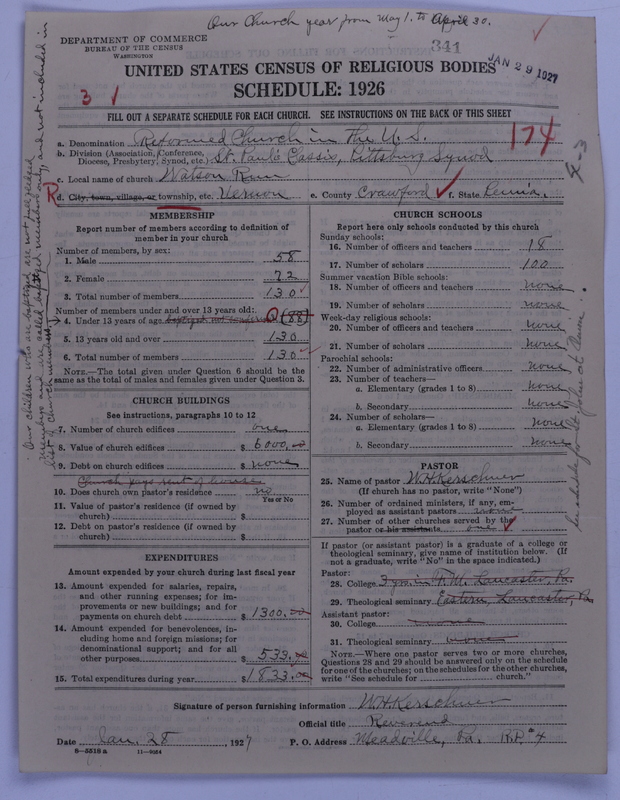 Our Church year from May 1. to April 30.
DEPARTMENT OF COMMERCE
BUREAU OF THE CENSUS
WASHINGTON
341
JAN 29 1927
UNITED STATES CENSUS OF RELIGIOUS BODIES
SCHEDULE: 1926
3
FILL OUT A SEPARATE SCHEDULE FOR EACH CHURCH. SEE INSTRUCTIONS ON THE BACK OF THIS SHEET
174
a. Denomination Reformed Church in the U.S.
b. Division (Association, Conference, Diocese, Presbytery, Synod, etc.) St. Paul's Classis, Pittsburg Synod
c. Local name of church Watson Run
R d. City, town, village, or township, etc. Vernon e. County Crawford f. State Penn'a.
MEMBERSHIP
Report number of members according to definition of member in your church
Number of members, by sex:
1. Male 58
2. Female 72
3. Total number of members 130
Number of members under and over 13 years old:
4. Under 13 years of age baptized not confirmed 0 (88)
5. 13 years old and over 130
6. Total number of members 130
NOTE.—The total given under Question 6 should be the same as the total of males and females given under Question 3.
CHURCH BUILDINGS
See instructions, paragraphs 10 to 12
7. Number of church edifices one
8. Value of church edifices $ 6000.00
9. Debt on church edifices $ none
10. Does church own pastor's residence no
Yes or No
11. Value of pastor's residence (if owned by church) $
12. Debt on pastor's residence (if owned by church) $
EXPENDITURES
Amount expended by your church during last fiscal year
13. Amount expended for salaries, repairs, and other running expenses; for improvements or new buildings; and for payments on church debt $ 1300.00
14. Amount expended for benevolences, including home and foreign missions; for denominational support; and for all other purposes $ 533.00
15. Total expenditures during year $ 1833.00
CHURCH SCHOOLS
Report here only schools conducted by this church
Sunday schools:
16. Number of officers and teachers 18
17. Number of scholars 100
Summer vacation Bible schools:
18. Number of officers and teachers none
19. Number of scholars none
Week-day religious schools:
20. Number of officers and teachers none
21. Number of scholars none
Parochial schools:
22. Number of administrative officers none
23. Number of teachers—
a. Elementary (grades 1 to 8) none
b. Secondary none
24. Number of scholars—
a. Elementary (grades 1 to 8) none
b. Secondary none
PASTOR
25. Name of pastor W.H. Kerschner
(If church has no pastor, write "None")
26. Number of ordained ministers, if any, employed as assistant pastors none
27. Number of other churches served by the pastor or his assistants one
If pastor (or assistant pastor) is a graduate of a college or theological seminary, give name of institution below. (If not a graduate, write "No" in the space indicated.)
Pastor:
28. College 3 yrs. in F. M. Lancaster, Pa.
29. Theological seminary Eastern, Lancaster, Pa
Assistant pastor:
30. College none
31. Theological seminary none
NOTE.—Where one pastor serves two or more churches, Questions 28 and 29 should be answered only on the schedule for one of the churches; on the schedules for the other churches, write "See schedule for church."
Signature of person furnishing information W.H. Kerschner
Official title Reverend
Date Jan. 28 1927 P. O. Address Meadville, Pa. R.D. #4
8—5518 a 11—9064